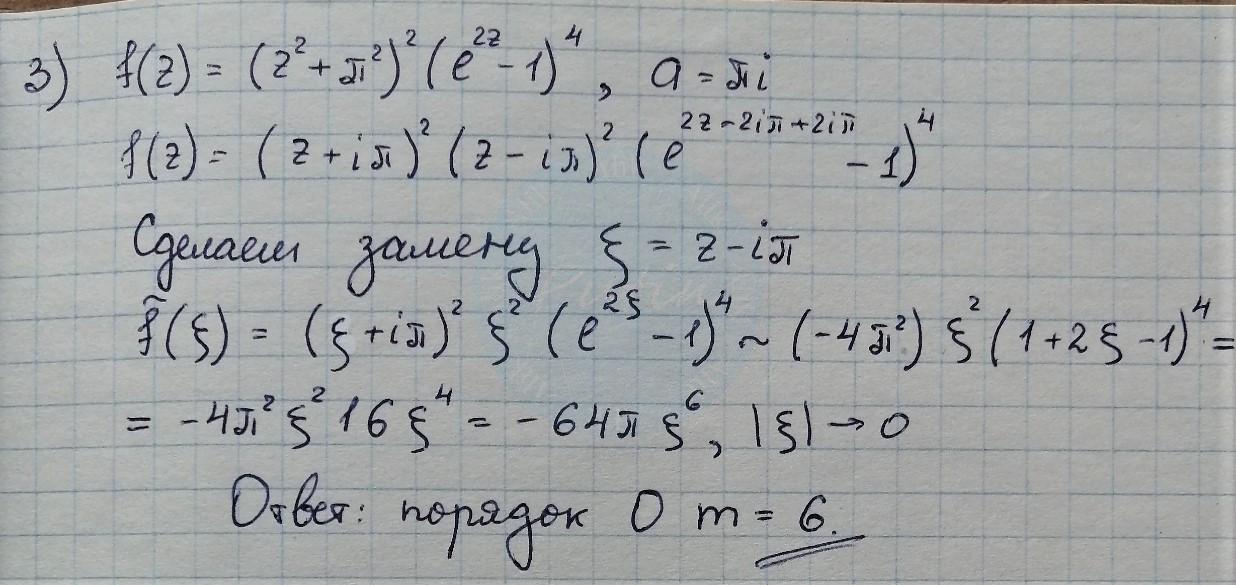 3) f(z) = (z² + π²)² (e²ᶻ - 1)⁴, a = πi
f(z) = (z + iπ)² (z - iπ)² (e^{2z-2iπ+2iπ} - 1)⁴
Сделаем замену ξ = z - iπ
f̃(ξ) = (ξ + iπ)² ξ² (e^{2ξ} - 1)⁴ ~ (-4π²) ξ² (1 + 2ξ - 1)⁴ =
= -4π² ξ² 16 ξ⁴ = -64π ξ⁶, |ξ| → 0
Ответ: порядок 0 m = 6.